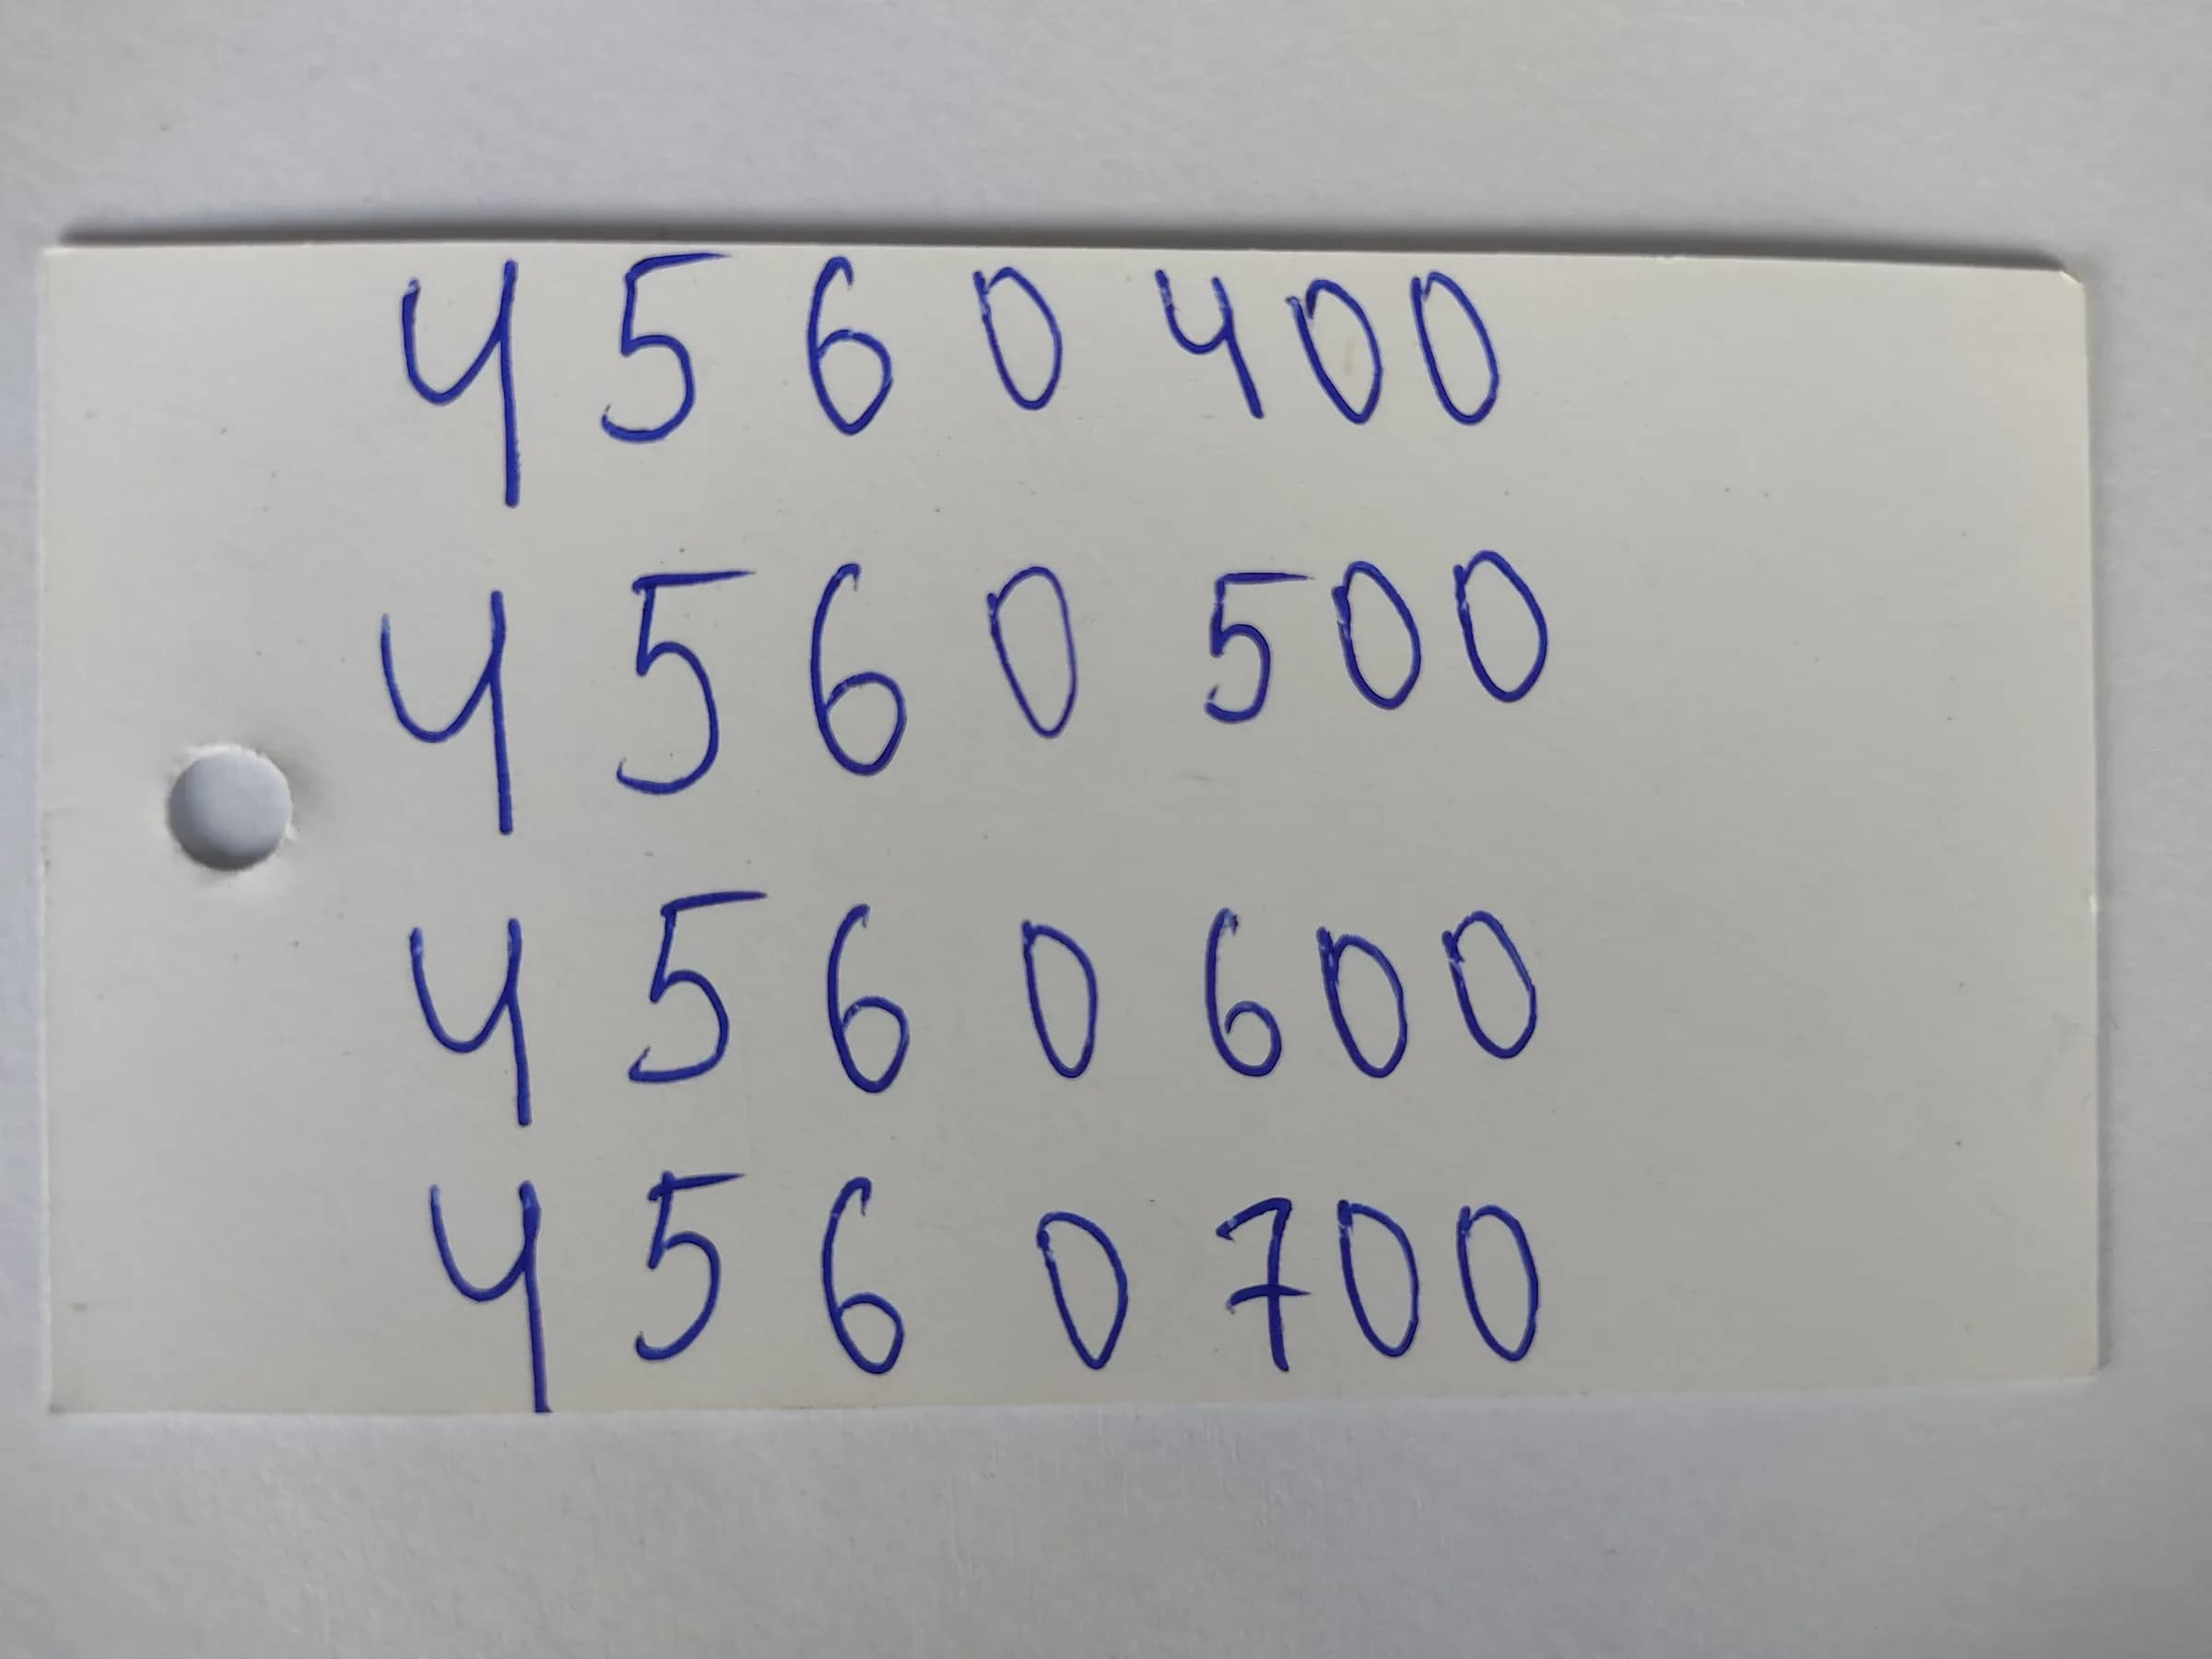 4 5 6 0 400
4 5 6 0 500
4 5 6 0 600
4 5 6 0 700